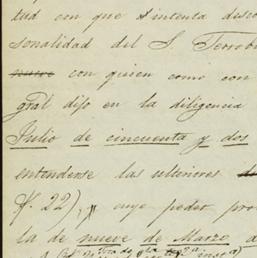 dad con que intenta desco
sonalidad del S. Terrob
con quien como con
gral dijo en la diligencia
Julio de cincuenta y dos
entenderse las ulteriores
f. 22), cuyo poder pro
la de nueve de Marzo